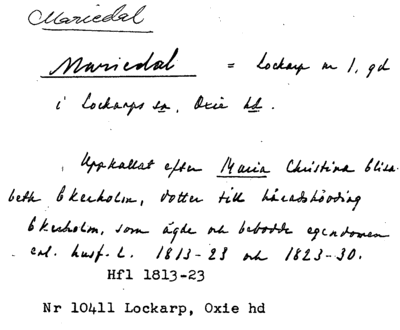 Mariedal
Mariedal = Lockarp nr 1, gd
i Lockarps sn, Oxie hd.
Uppkallat efter Maria Christina Elisa-
beth Ekerholm, dotter till häradshövding
Ekerholm, som ägde och bebodde egendomen
enl. husf. L. 1813-23 och 1823-30.
Hfl 1813-23
Nr 10411 Lockarp, Oxie hd